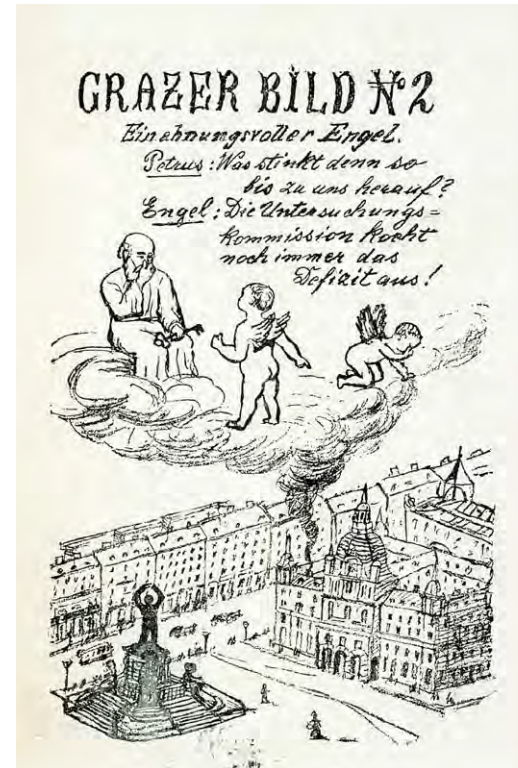 GRAZER BILD No 2
Ein ahnungsvoller Engel.
Petrus: Was stinkt denn so
bis zu uns herauf?
Engel: Die Untersuchungs=
kommission kocht
noch immer das
Defizit aus!